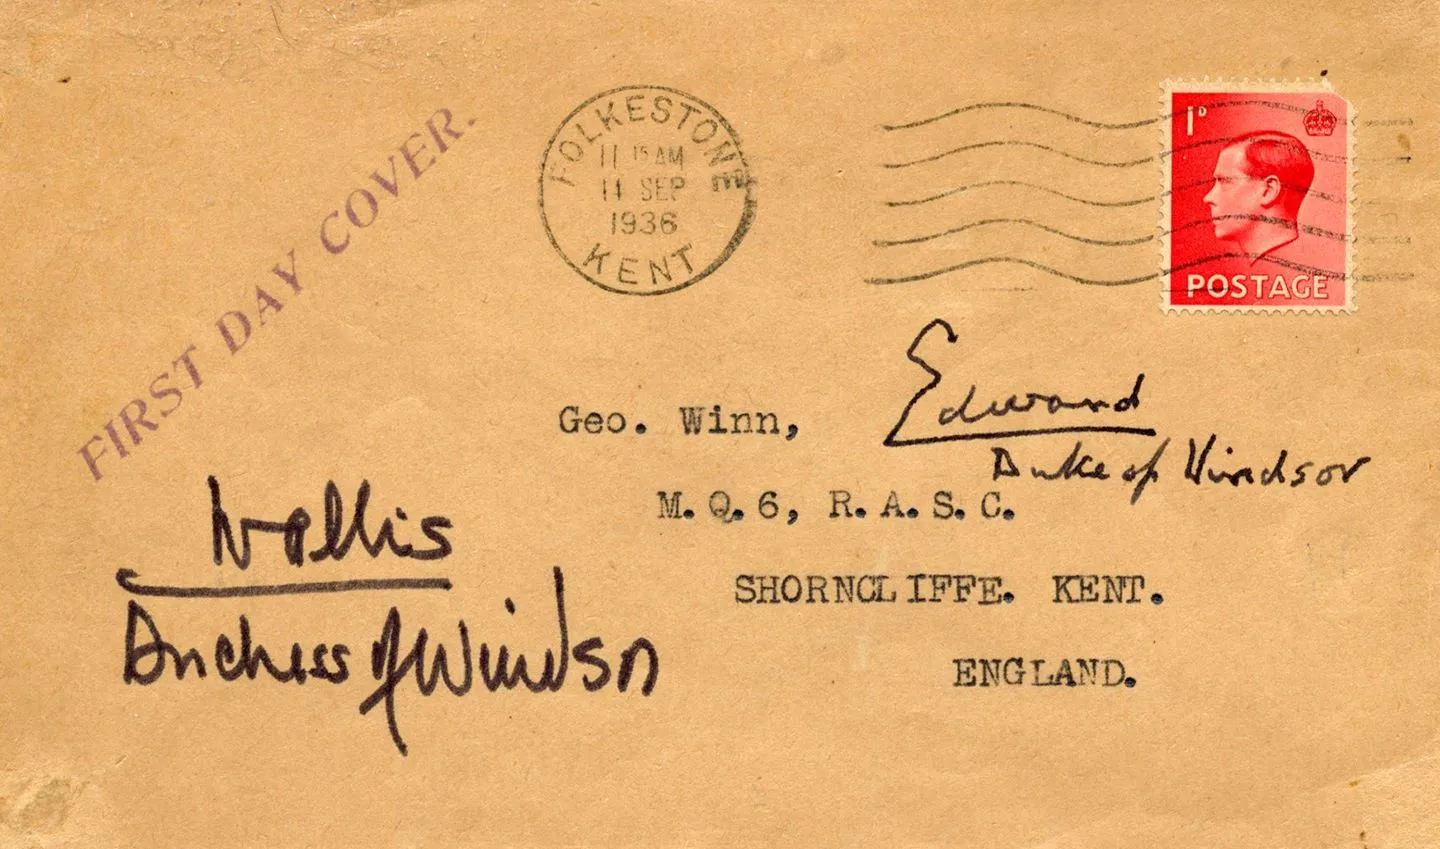 FIRST DAY COVER.
FOLKESTONE
11 15 AM
11 SEP
1936
KENT
1D
POSTAGE
Edward
Duke of Windsor
Geo. Winn,
M.Q.6, R.A.S.C.
SHORNCLIFFE. KENT.
ENGLAND.
Wallis
Duchess of Windsor